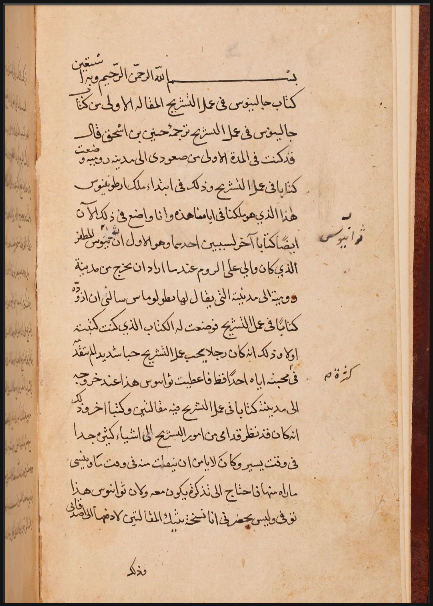 بسم الله الرحمن الرحيم وبه نستعين
كتاب جالينوس في عمل التشريح المقالة الاولى من كتاب
جالينوس في عمل التشريح ترجمة حنين بن اسحق قال
قد كنت في المدة الاولى من صعودي الى مدينة رومية وضعت
كتابا في عمل التشريح وذلك في ابتداء ملك انطونينوس
هذا الذي هو ملكنا في ايامنا هذه وانا واضع في ذلك الآن
ايضا كتابا آخر لسببين احدهما وهو الاول ان
الذي كان والي على الروم عند ما اراد ان يخرج من مدينة
رومية الى مدينته التي يقال لها بطولومايس سالني ان ازوده
كتابا في عمل التشريح فوضعت له الكتاب الذي كنت كتبته
اولا وذلك انه كان رجلا يحب عمل التشريح حبا شديدا لم يتقدمه
في محبته اياه احدا قط فاعطيت بواثوس هذا عند خروجه
الى مدينته كتابا في عمل التشريح فيه مقالتين وكتبا اخر وذلك
انه كان قد نظر قدامي من امور التشريح الى اشياء كثيرة جدا
في وقت يسير وكان لا يامن ان ينفلت منه في وقت ما وينسى
ما رآه منها فاحتاج الى تذكرة يكون معه ولان بواثوس هذا
توفى وليس بحضرني انا نسخة بتيك المقالتين لادفعها الى اصدقائي
وذلك
كثرة